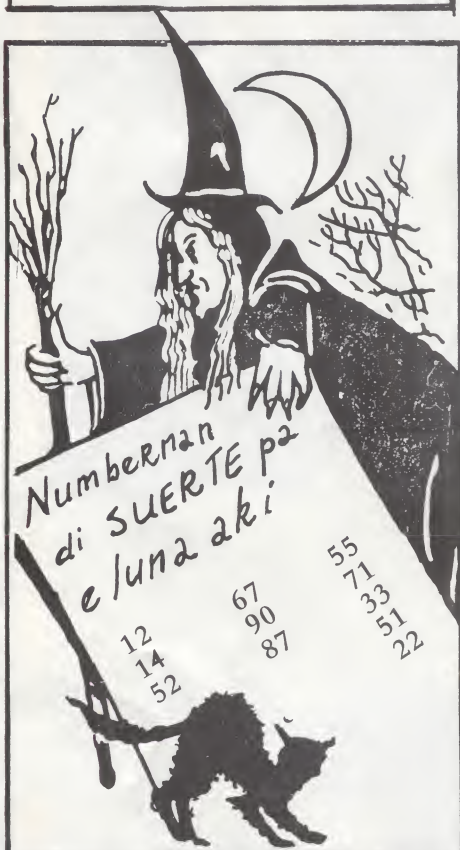 Numbernan
di SUERTE pa
e luna aki
12
14
52
67
90
87
55
71
33
51
22